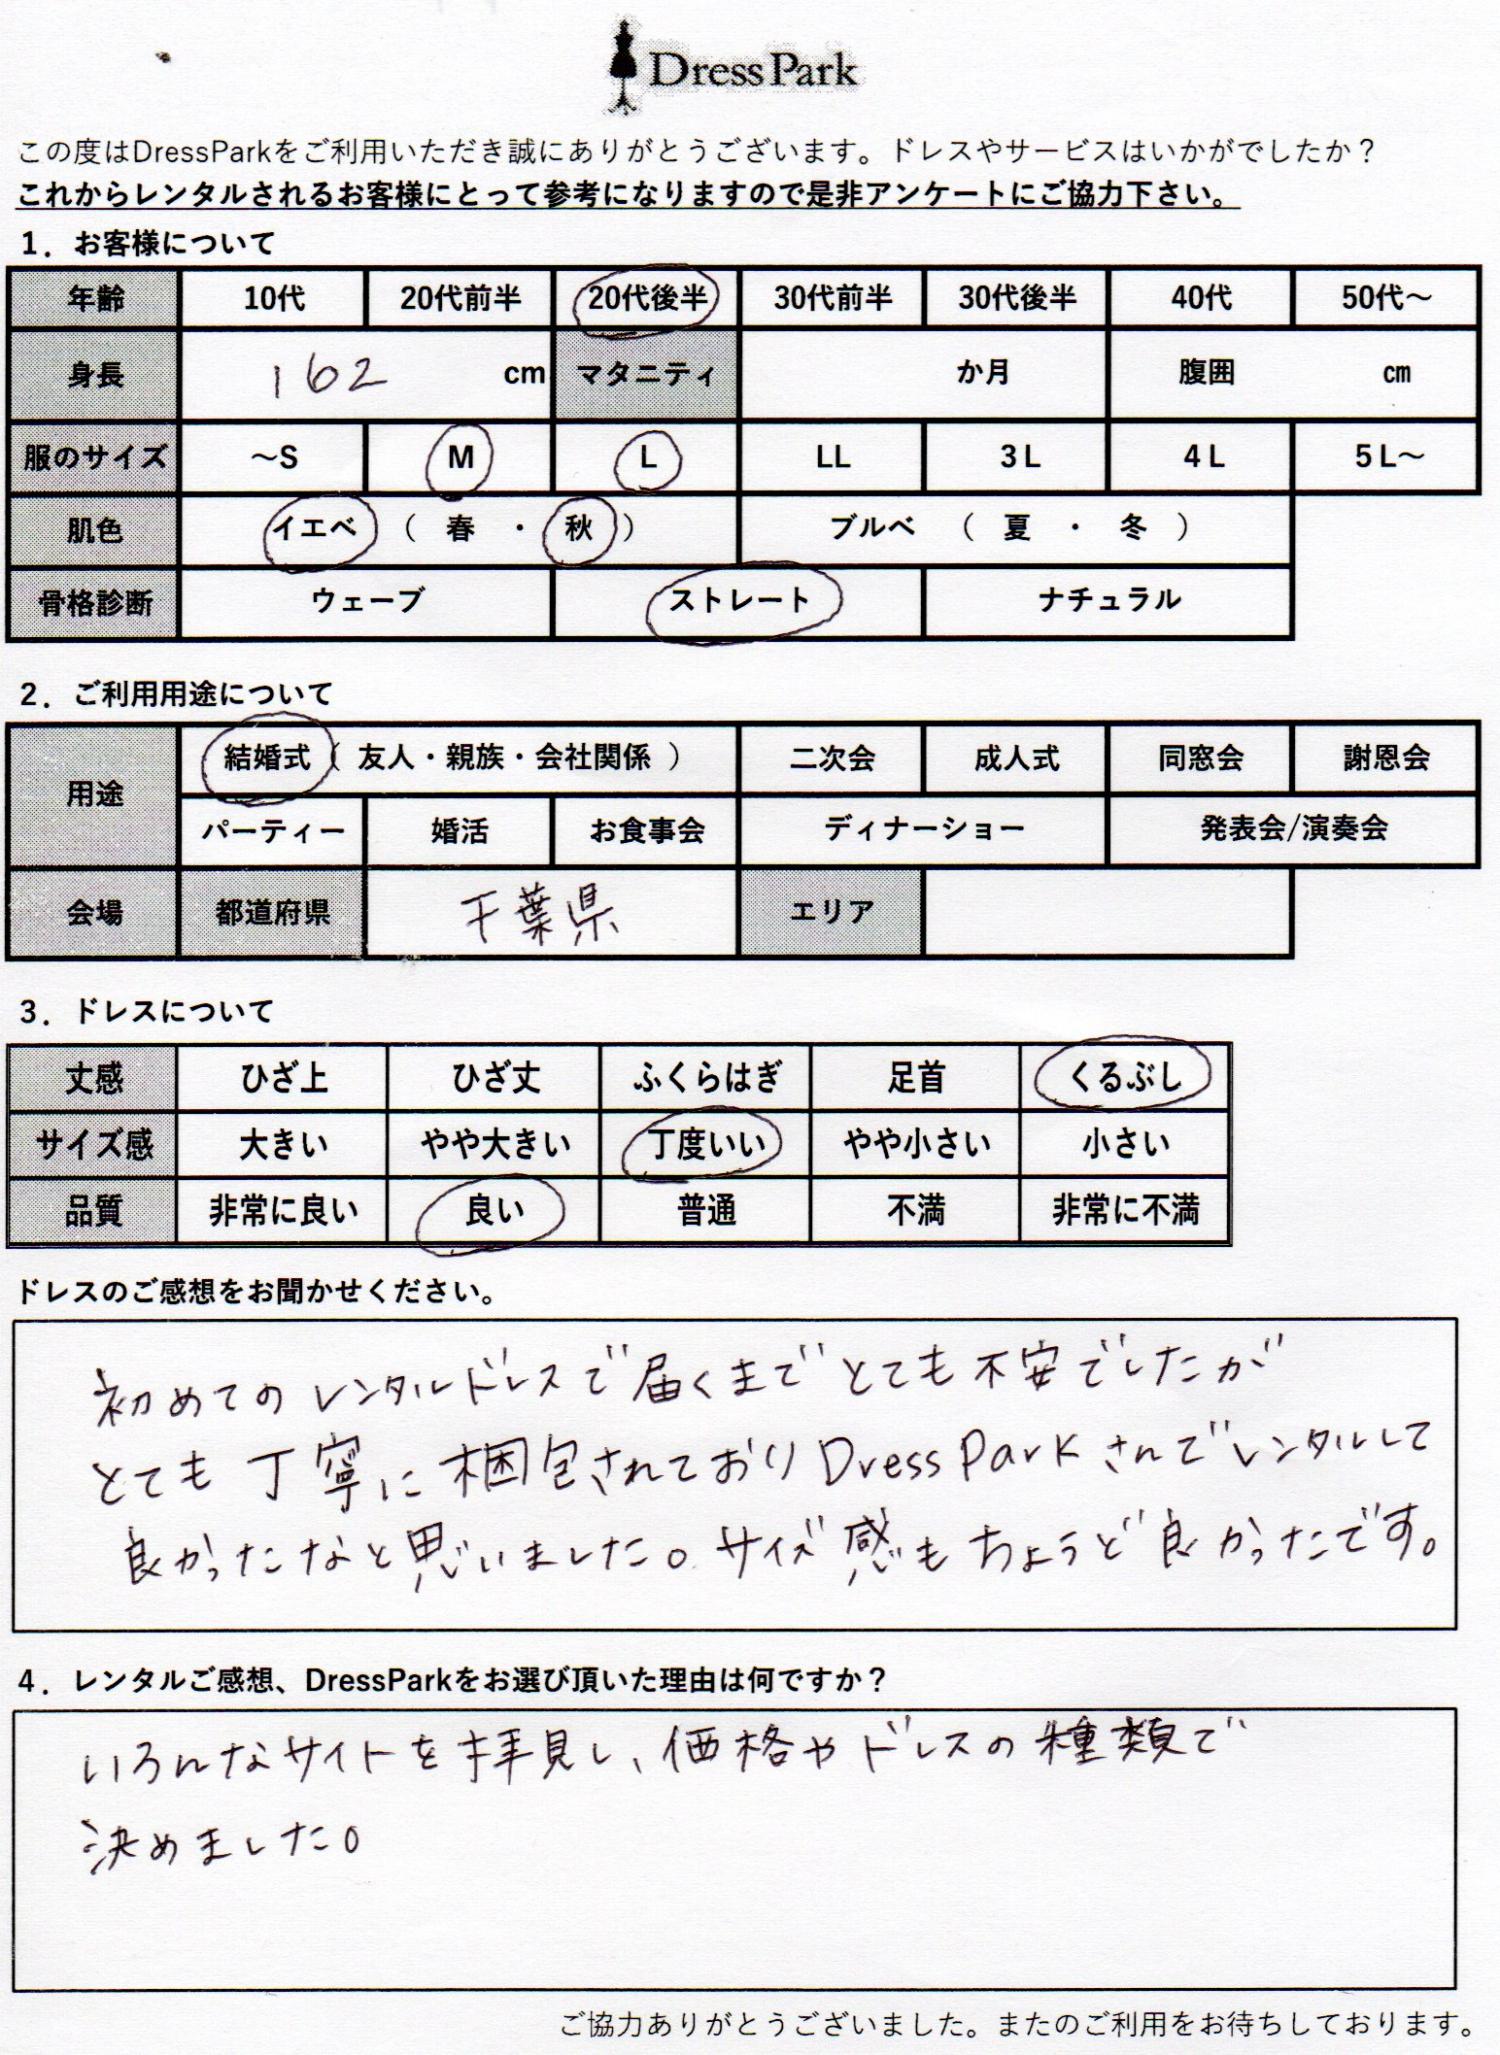 DressPark
この度はDressParkをご利用いただき誠にありがとうございます。ドレスやサービスはいかがでしたか？
これからレンタルされるお客様にとって参考になりますので是非アンケートにご協力下さい。
1．お客様について
年齢 10代 20代前半 20代後半 30代前半 30代後半 40代 50代～
身長 162 cm マタニティ か月 腹囲 ㎝
服のサイズ ～S M L LL 3L 4L 5L～
肌色 イエベ （ 春 ・ 秋 ） ブルベ （ 夏 ・ 冬 ）
骨格診断 ウェーブ ストレート ナチュラル
2．ご利用用途について
用途 結婚式（ 友人・親族・会社関係 ） 二次会 成人式 同窓会 謝恩会
パーティー 婚活 お食事会 ディナーショー 発表会/演奏会
会場 都道府県 千葉県 エリア
3．ドレスについて
丈感 ひざ上 ひざ丈 ふくらはぎ 足首 くるぶし
サイズ感 大きい やや大きい 丁度いい やや小さい 小さい
品質 非常に良い 良い 普通 不満 非常に不満
ドレスのご感想をお聞かせください。
初めてのレンタルドレスで届くまでとても不安でしたが
とても丁寧に梱包されておりDressParkさんでレンタルして
良かったなと思いました。サイズ感もちょうど良かったです。
4．レンタルご感想、DressParkをお選び頂いた理由は何ですか？
いろんなサイトを拝見し、価格やドレスの種類で
決めました。
ご協力ありがとうございました。またのご利用をお待ちしております。